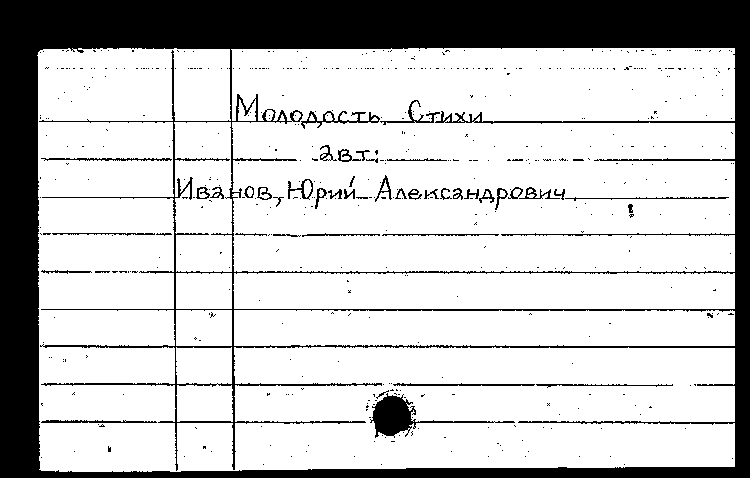 Молодость. Стихи
авт:
Иванов, Юрий Александрович.